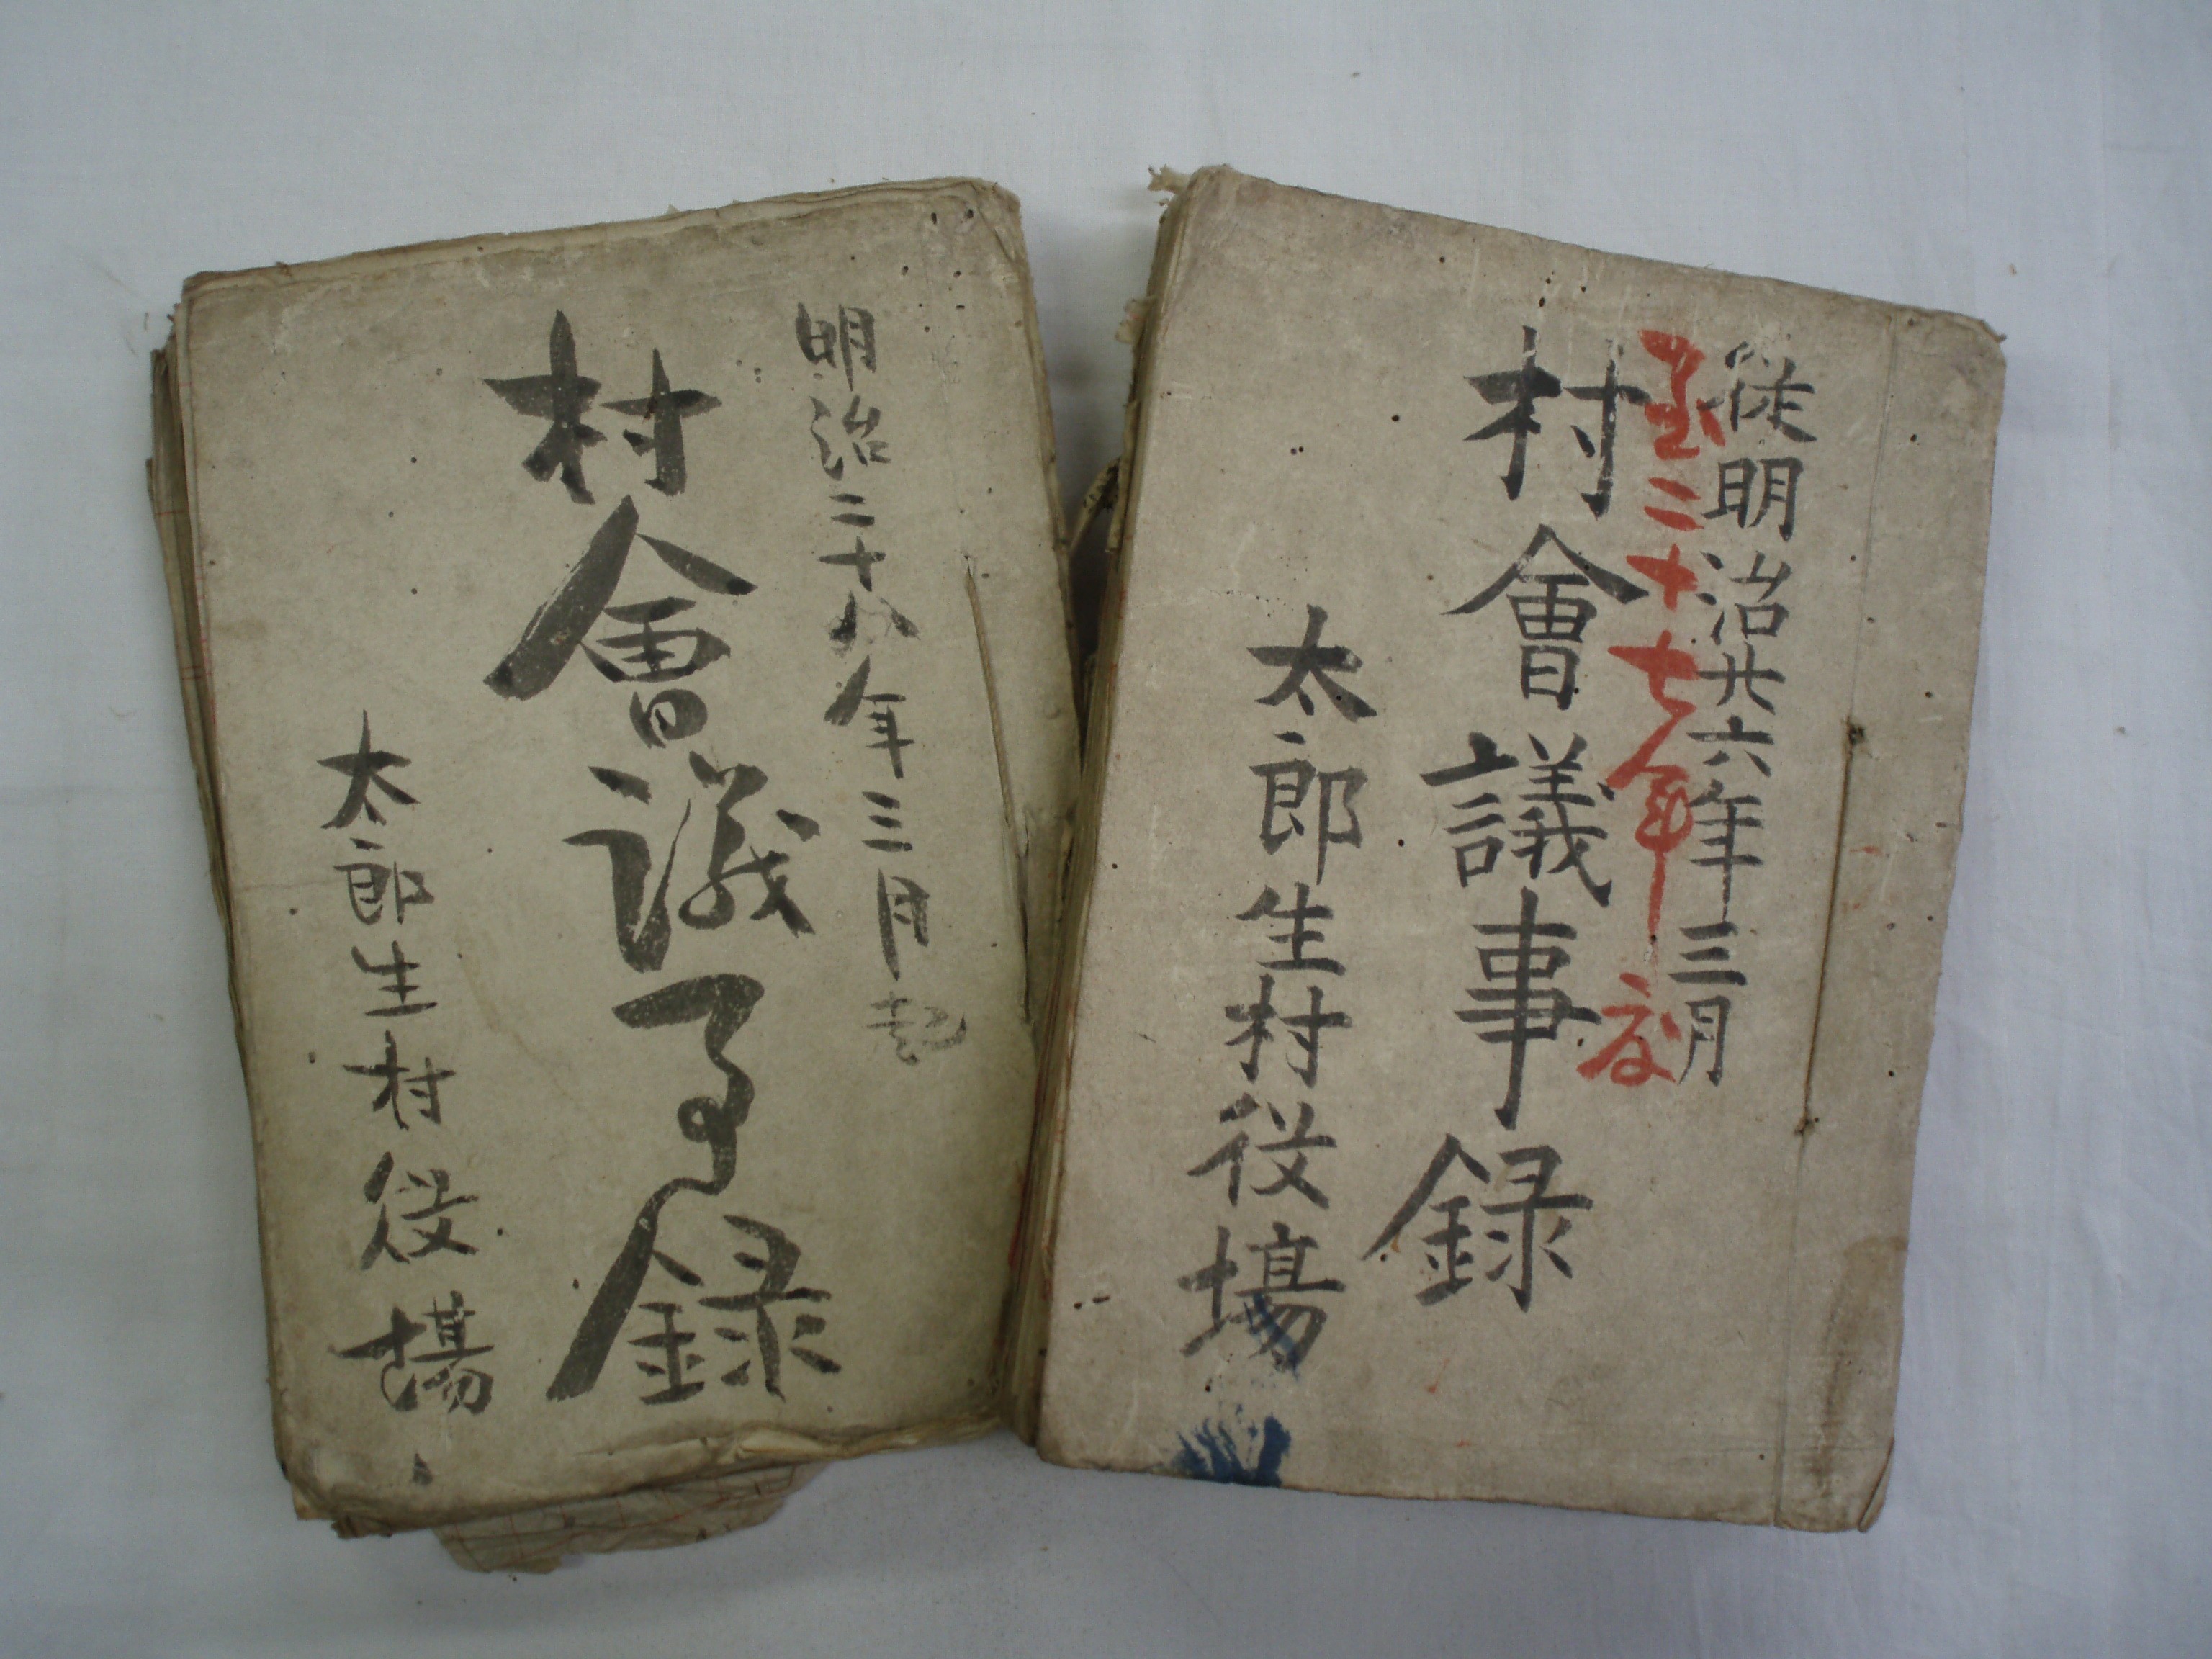 從明治廿六年三月
至二十七年度
村會議事録
太郎生村役場
明治二十八年三月起
村會議事録
太郎生村役場